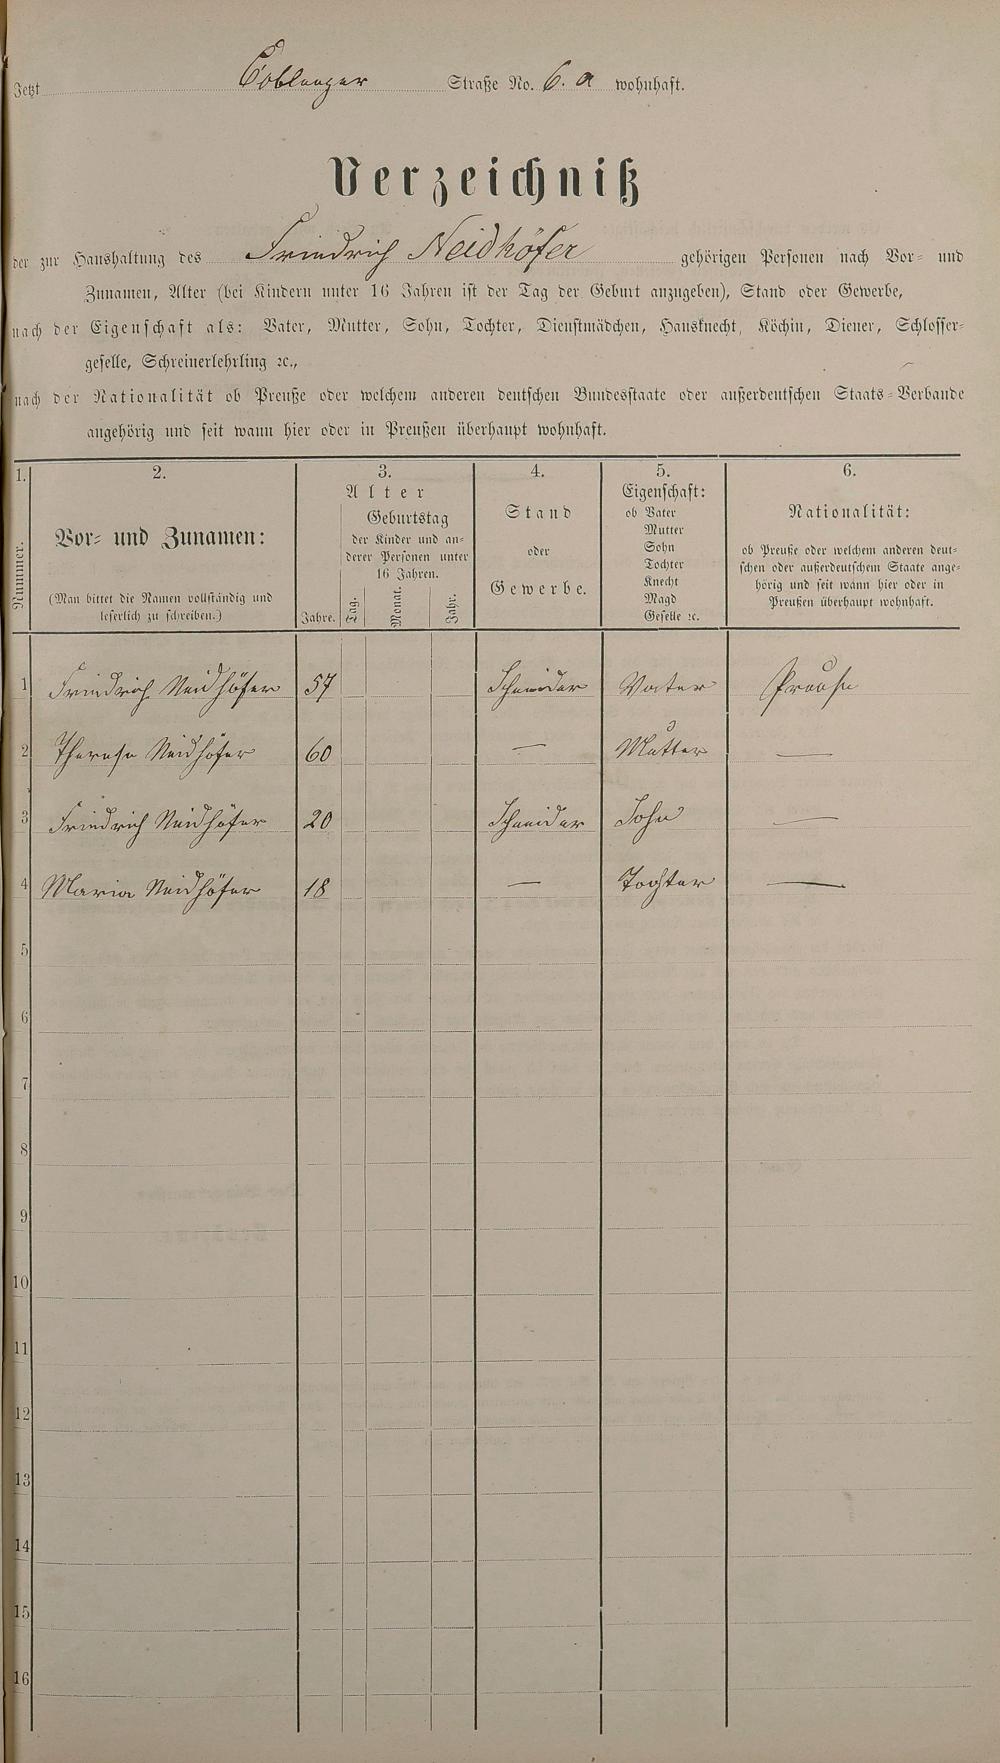 Jetzt Coblenzer Straße No. 6. a wohnhaft.
Verzeichniß
der zur Haushaltung des Friedrich Neidhöfer gehörigen Personen nach Vor- und
Zunamen, Alter (bei Kindern unter 16 Jahren ist der Tag der Geburt anzugeben), Stand oder Gewerbe,
nach der Eigenschaft als: Vater, Mutter, Sohn, Tochter, Dienstmädchen, Hausknecht, Köchin, Diener, Schlosser-
geselle, Schreinerlehrling ꝛc.,
nach der Nationalität ob Preuße oder welchem anderen deutschen Bundesstaate oder außerdeutschen Staats-Verbande
angehörig und seit wann hier oder in Preußen überhaupt wohnhaft.
1.
Nummer.
2.
Vor- und Zunamen:
(Man bittet die Namen vollständig und
leserlich zu schreiben.)
3.
Alter
Jahre.
Geburtstag
der Kinder und an-
derer Personen unter
16 Jahren.
Tag.
Monat.
Jahr.
4.
Stand
oder
Gewerbe.
5.
Eigenschaft:
ob Vater
Mutter
Sohn
Tochter
Knecht
Magd
Geselle ꝛc.
6.
Nationalität:
ob Preuße oder welchem anderen deut-
schen oder außerdeutschem Staate ange-
hörig und seit wann hier oder in
Preußen überhaupt wohnhaft.
1 Friedrich Neidhöfer 57 Schneider Vater Preuße
2 Therese Neidhöfer 60 — Mutter —
3 Friedrich Neidhöfer 20 Schneider Sohn —
4 Maria Neidhöfer 18 — Tochter —
5
6
7
8
9
10
11
12
13
14
15
16